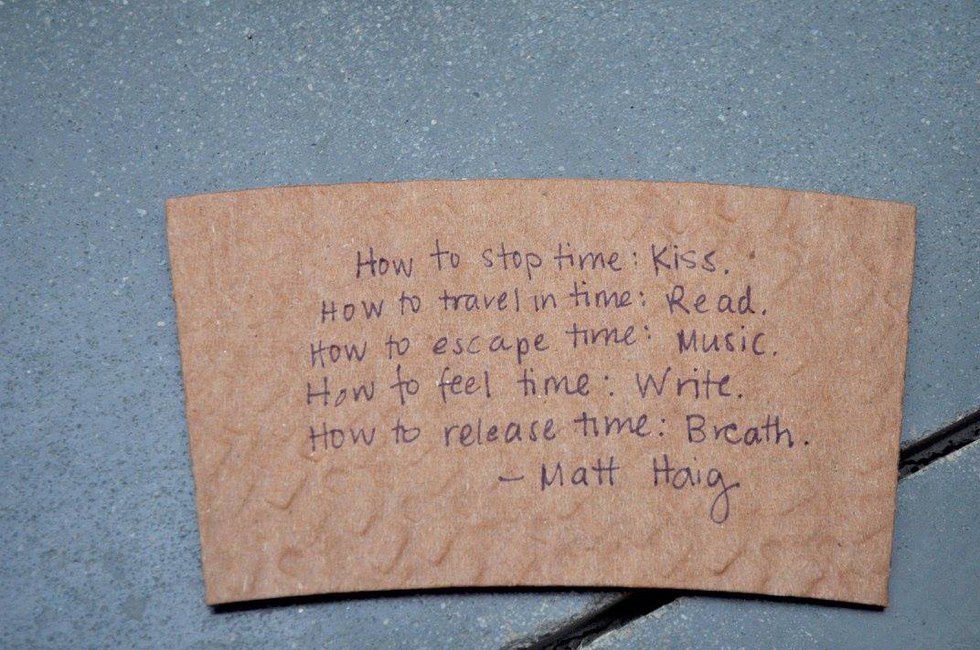 How to stop time: Kiss.
How to travel in time: Read.
How to escape time: Music.
How to feel time: Write.
How to release time: Breath.
– Matt Haig